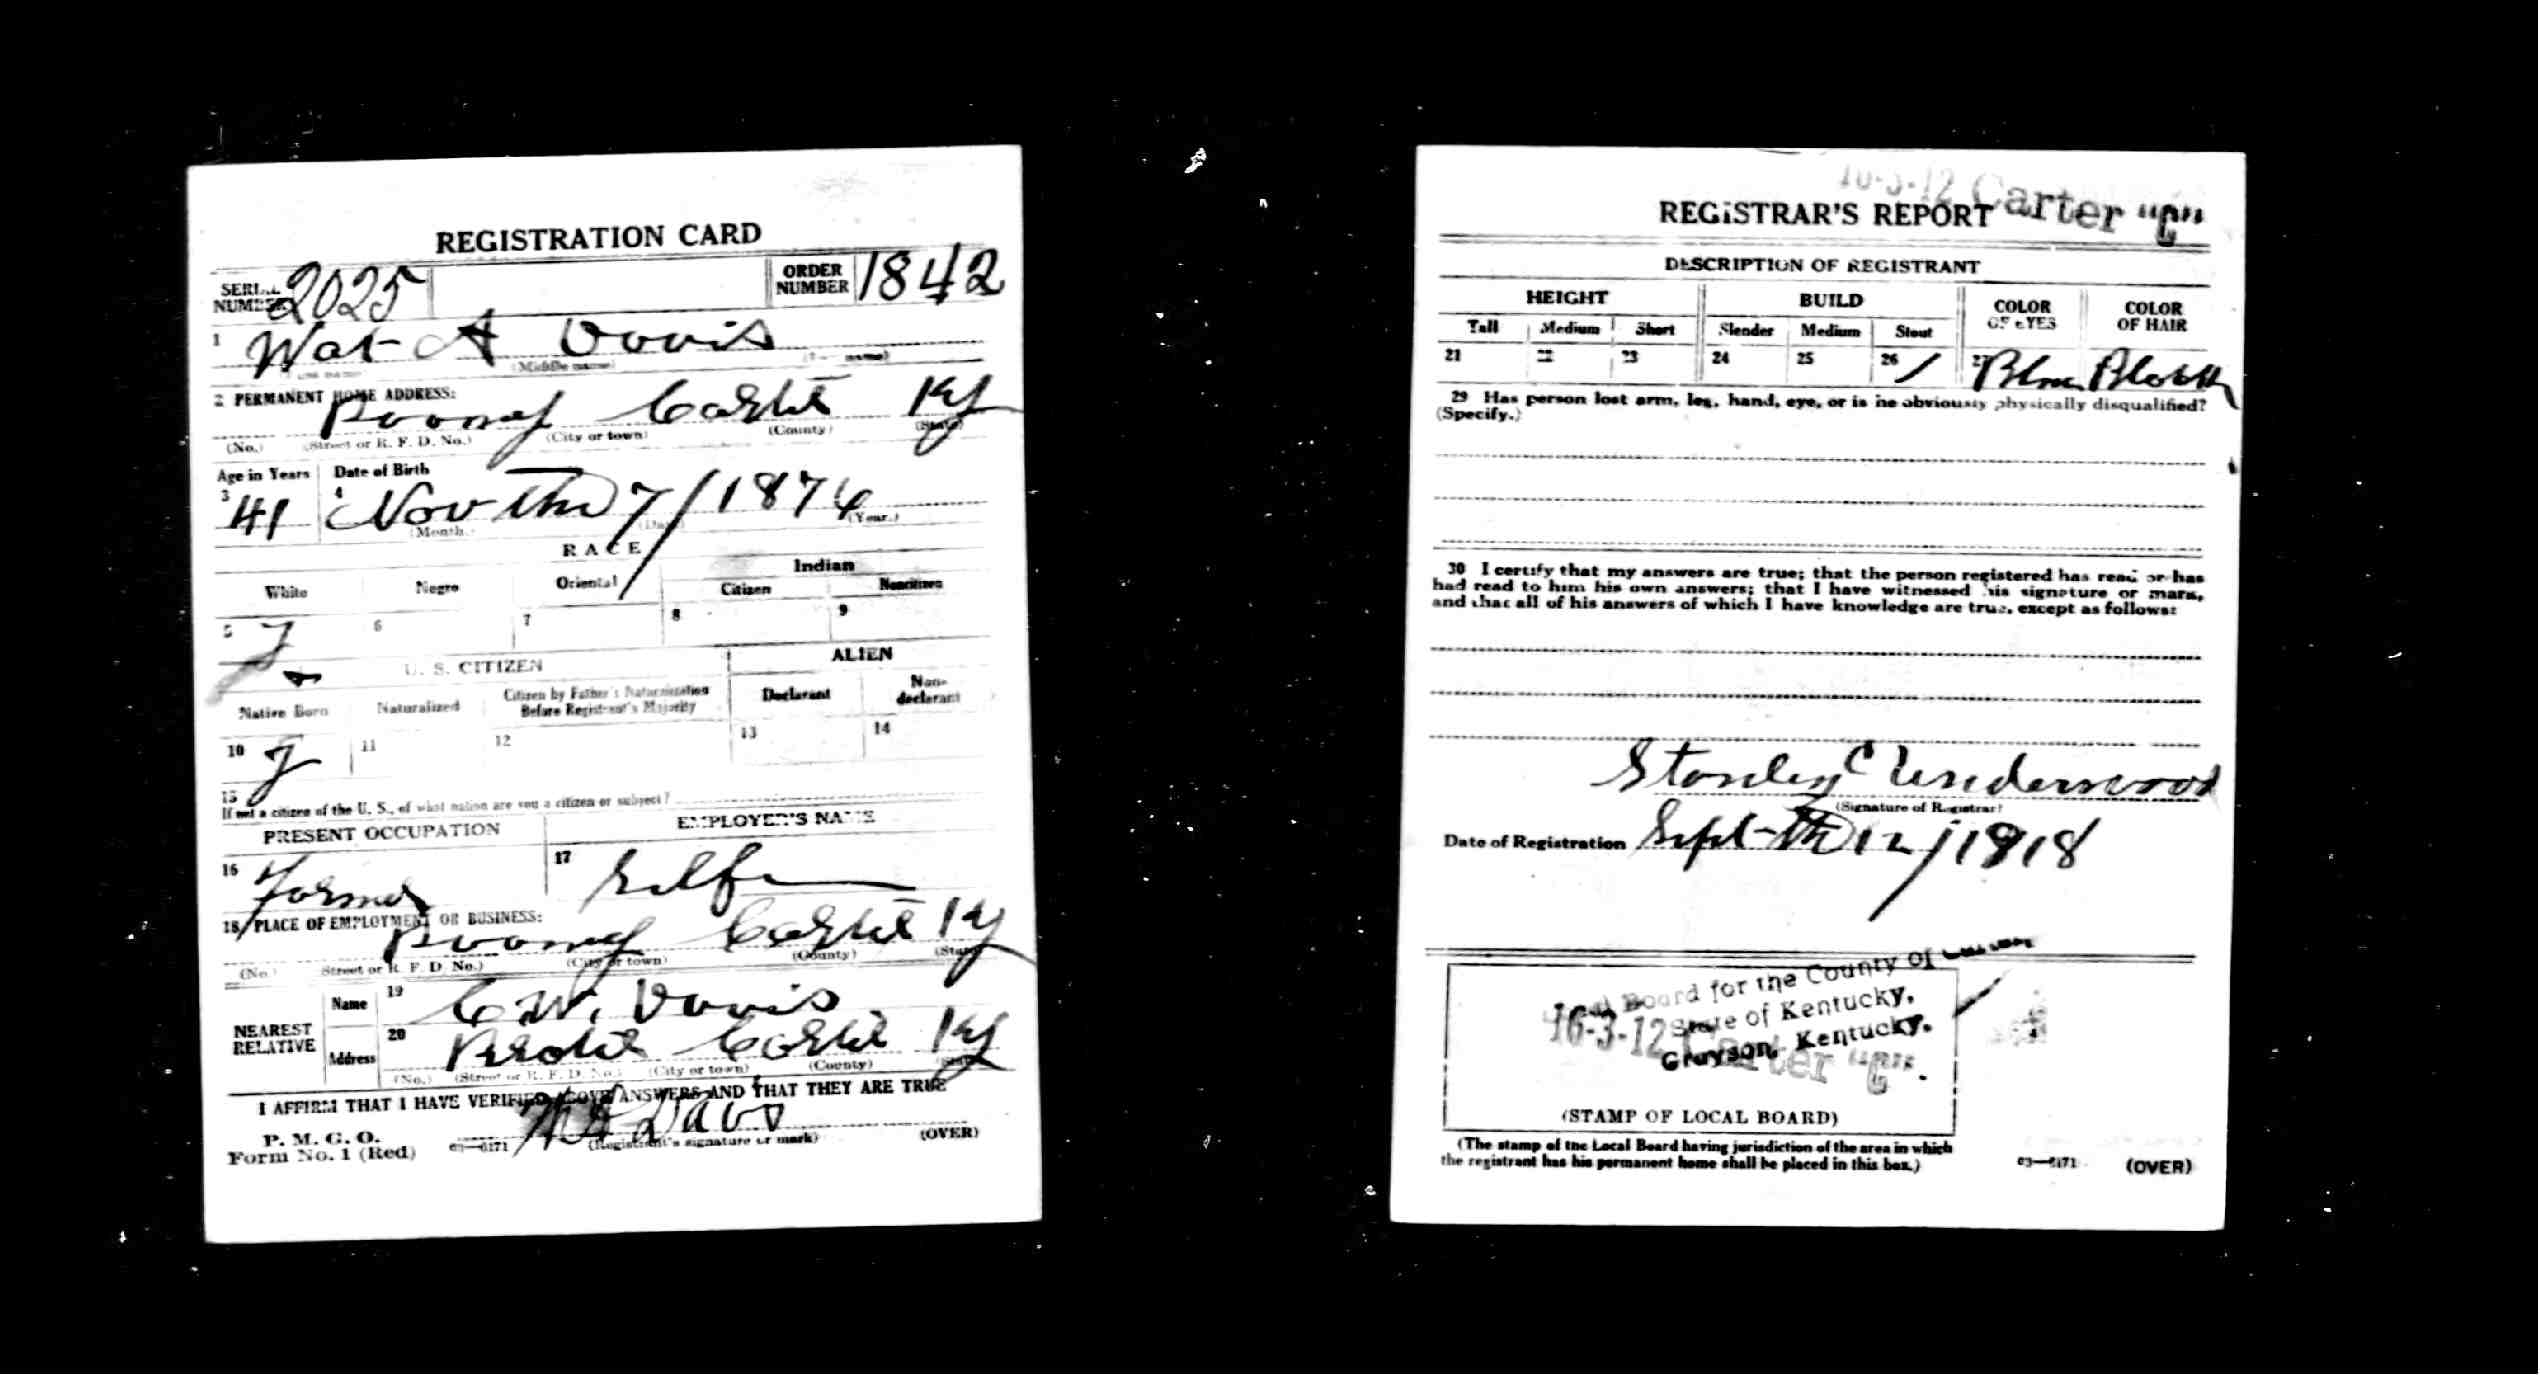 REGISTRATION CARD
SERIAL NUMBER 2025 ORDER NUMBER 1842
1 Wat A Davis
(Middle name) name)
2 PERMANENT HOME ADDRESS:
Carter Ky
(No.) (Street or R. F. D. No.) (City or town) (County) (State)
Age in Years Date of Birth
3 41 4 Nov the 7/1876
(Month.) (Day) (Year.)
RACE
White Negro Oriental Indian
Citizen Noncitizen
5 6 7 8 9
U. S. CITIZEN ALIEN
Native Born Naturalized Citizen by Father's Naturalization Before Registrant's Majority Declarant Non-declarant
10 11 12 13 14
15
If not a citizen of the U. S., of what nation are you a citizen or subject?
PRESENT OCCUPATION EMPLOYER'S NAME
16 Farmer 17 Self
18 PLACE OF EMPLOYMENT OR BUSINESS:
Carter Ky
(No.) Street or R. F. D. No.) (City or town) (County) (State)
NEAREST RELATIVE Name 19 C W. Davis
Address 20 Carter Ky
(No.) (Street or R. F. D. No.) (City or town) (County) (State)
I AFFIRM THAT I HAVE VERIFIED ABOVE ANSWERS AND THAT THEY ARE TRUE
P. M. G. O.
Form No. 1 (Red) 03—6171 (Registrant's signature or mark) (OVER)
16-3-12 Carter "C"
REGISTRAR'S REPORT
DESCRIPTION OF REGISTRANT
HEIGHT BUILD COLOR OF EYES COLOR OF HAIR
Tall Medium Short Slender Medium Stout
21 22 23 24 25 26 / 27 Blue
29 Has person lost arm, leg, hand, eye, or is he obviously physically disqualified?
(Specify.)
30 I certify that my answers are true; that the person registered has read or has
had read to him his own answers; that I have witnessed his signature or mark,
and that all of his answers of which I have knowledge are true, except as follows:
Stanley C Underwood
(Signature of Registrar)
Date of Registration Sept the 12/1918
Board for the County of
State of Kentucky,
Grayson, Kentucky.
16-3-12 Carter "C".
(STAMP OF LOCAL BOARD)
(The stamp of the Local Board having jurisdiction of the area in which
the registrant has his permanent home shall be placed in this box.)
03—6171 (OVER)